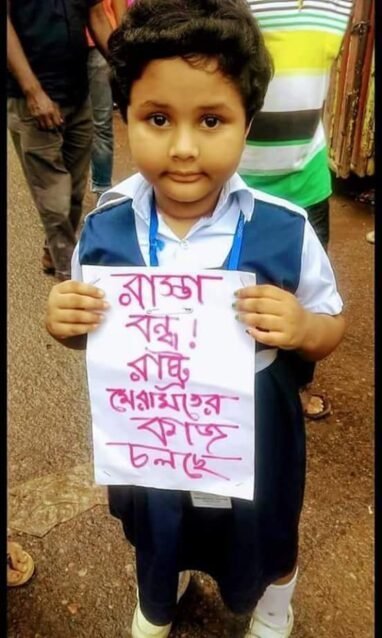 রাস্তা
বন্ধ!
রাষ্ট্র
মেরামতের
কাজ
চলছে